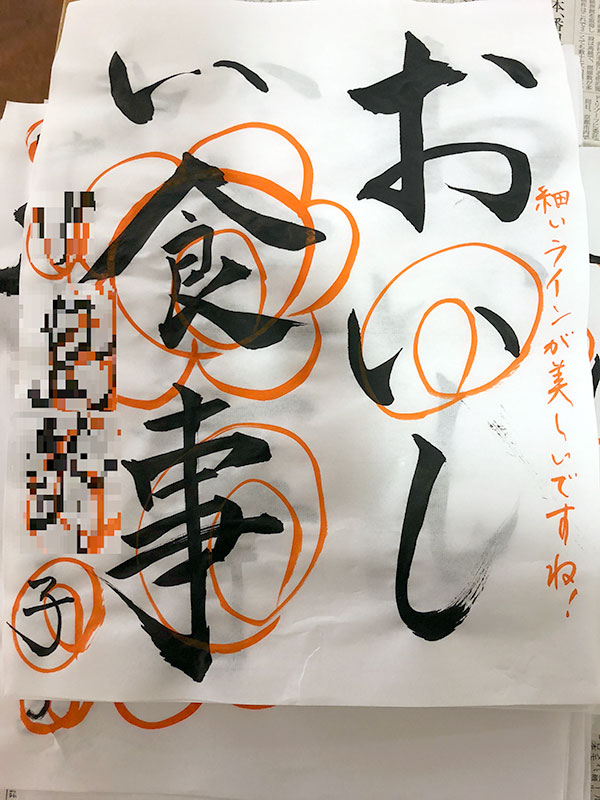 おいし
い食事
子
細いラインが美しいですね!